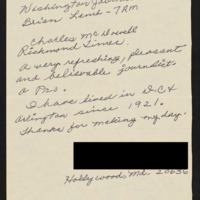 Washington Journal
Brian Lamb - 7 AM
Charles McDowell
Richmond Times.
A very refreshing, pleasant
and believable journalist.
a Pro.
I have lived in D.C. &
Arlington since 1921.
Thanks for making my day.
Hollywood, Md. 20636